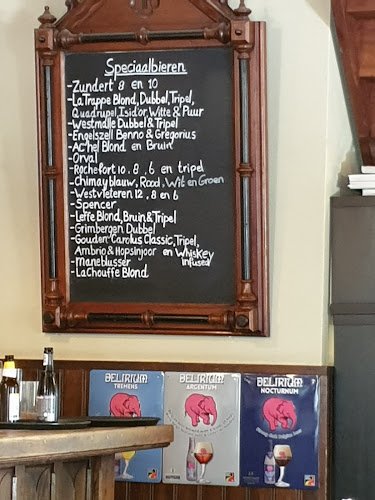 Speciaalbieren
-Zundert 8 en 10
-La Trappe Blond, Dubbel, Tripel,
Quadrupel, Isid'or, Witte & Puur
-Westmalle Dubbel & Tripel
-Engelszell Benno & Gregorius
-Achel Blond en Bruin
-Orval
-Rochefort 10, 8, 6 en tripel
-Chimay blauw, Rood, Wit en Groen
-Westvleteren 12, 8 en 6
-Spencer
-Leffe Blond, Bruin & Tripel
-Grimbergen Dubbel
-Gouden Carolus Classic, Tripel,
Ambrio & Hopsinjoor en Whiskey
infused
-Maneblusser
-La Chouffe Blond
DELIRIUM
TREMENS
DELIRIUM
ARGENTUM
DELIRIUM
NOCTURNUM